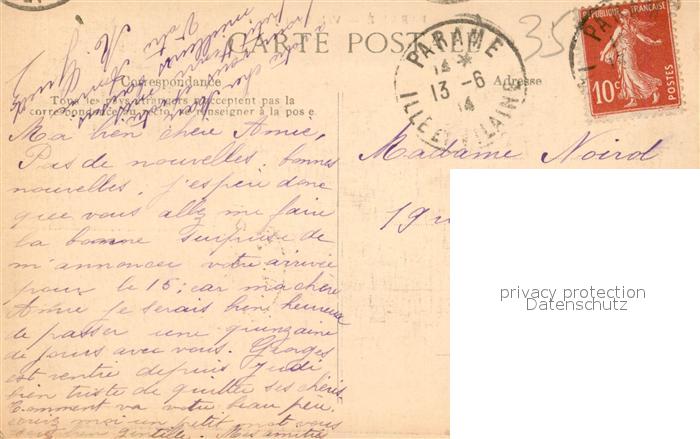 CARTE POSTALE
Correspondance
Adresse
Tous les pays étrangers n'acceptent pas la
correspondance au recto, se renseigner à la poste
PARAMÉ
14 *
13 - 6
14
ILLE ET VILAINE
RÉPUBLIQUE FRANÇAISE
10c
POSTES
35
Ma bien chère Amie,
Pas de nouvelles, bonnes
nouvelles, j'espère donc
que vous allez me faire
la bonne surprise de
m'annoncer votre arrivée
pour le 15; car ma chère
Amie je serais bien heureuse
de passer une quinzaine
de jours avec vous. Georges
est rentré depuis Jeudi
bien triste de quitter ses chéris.
Comment va votre beau père.
moi un petit mot vous
bien gentille. Mes amitiés
Madame Noirot
19
privacy protection
Datenschutz